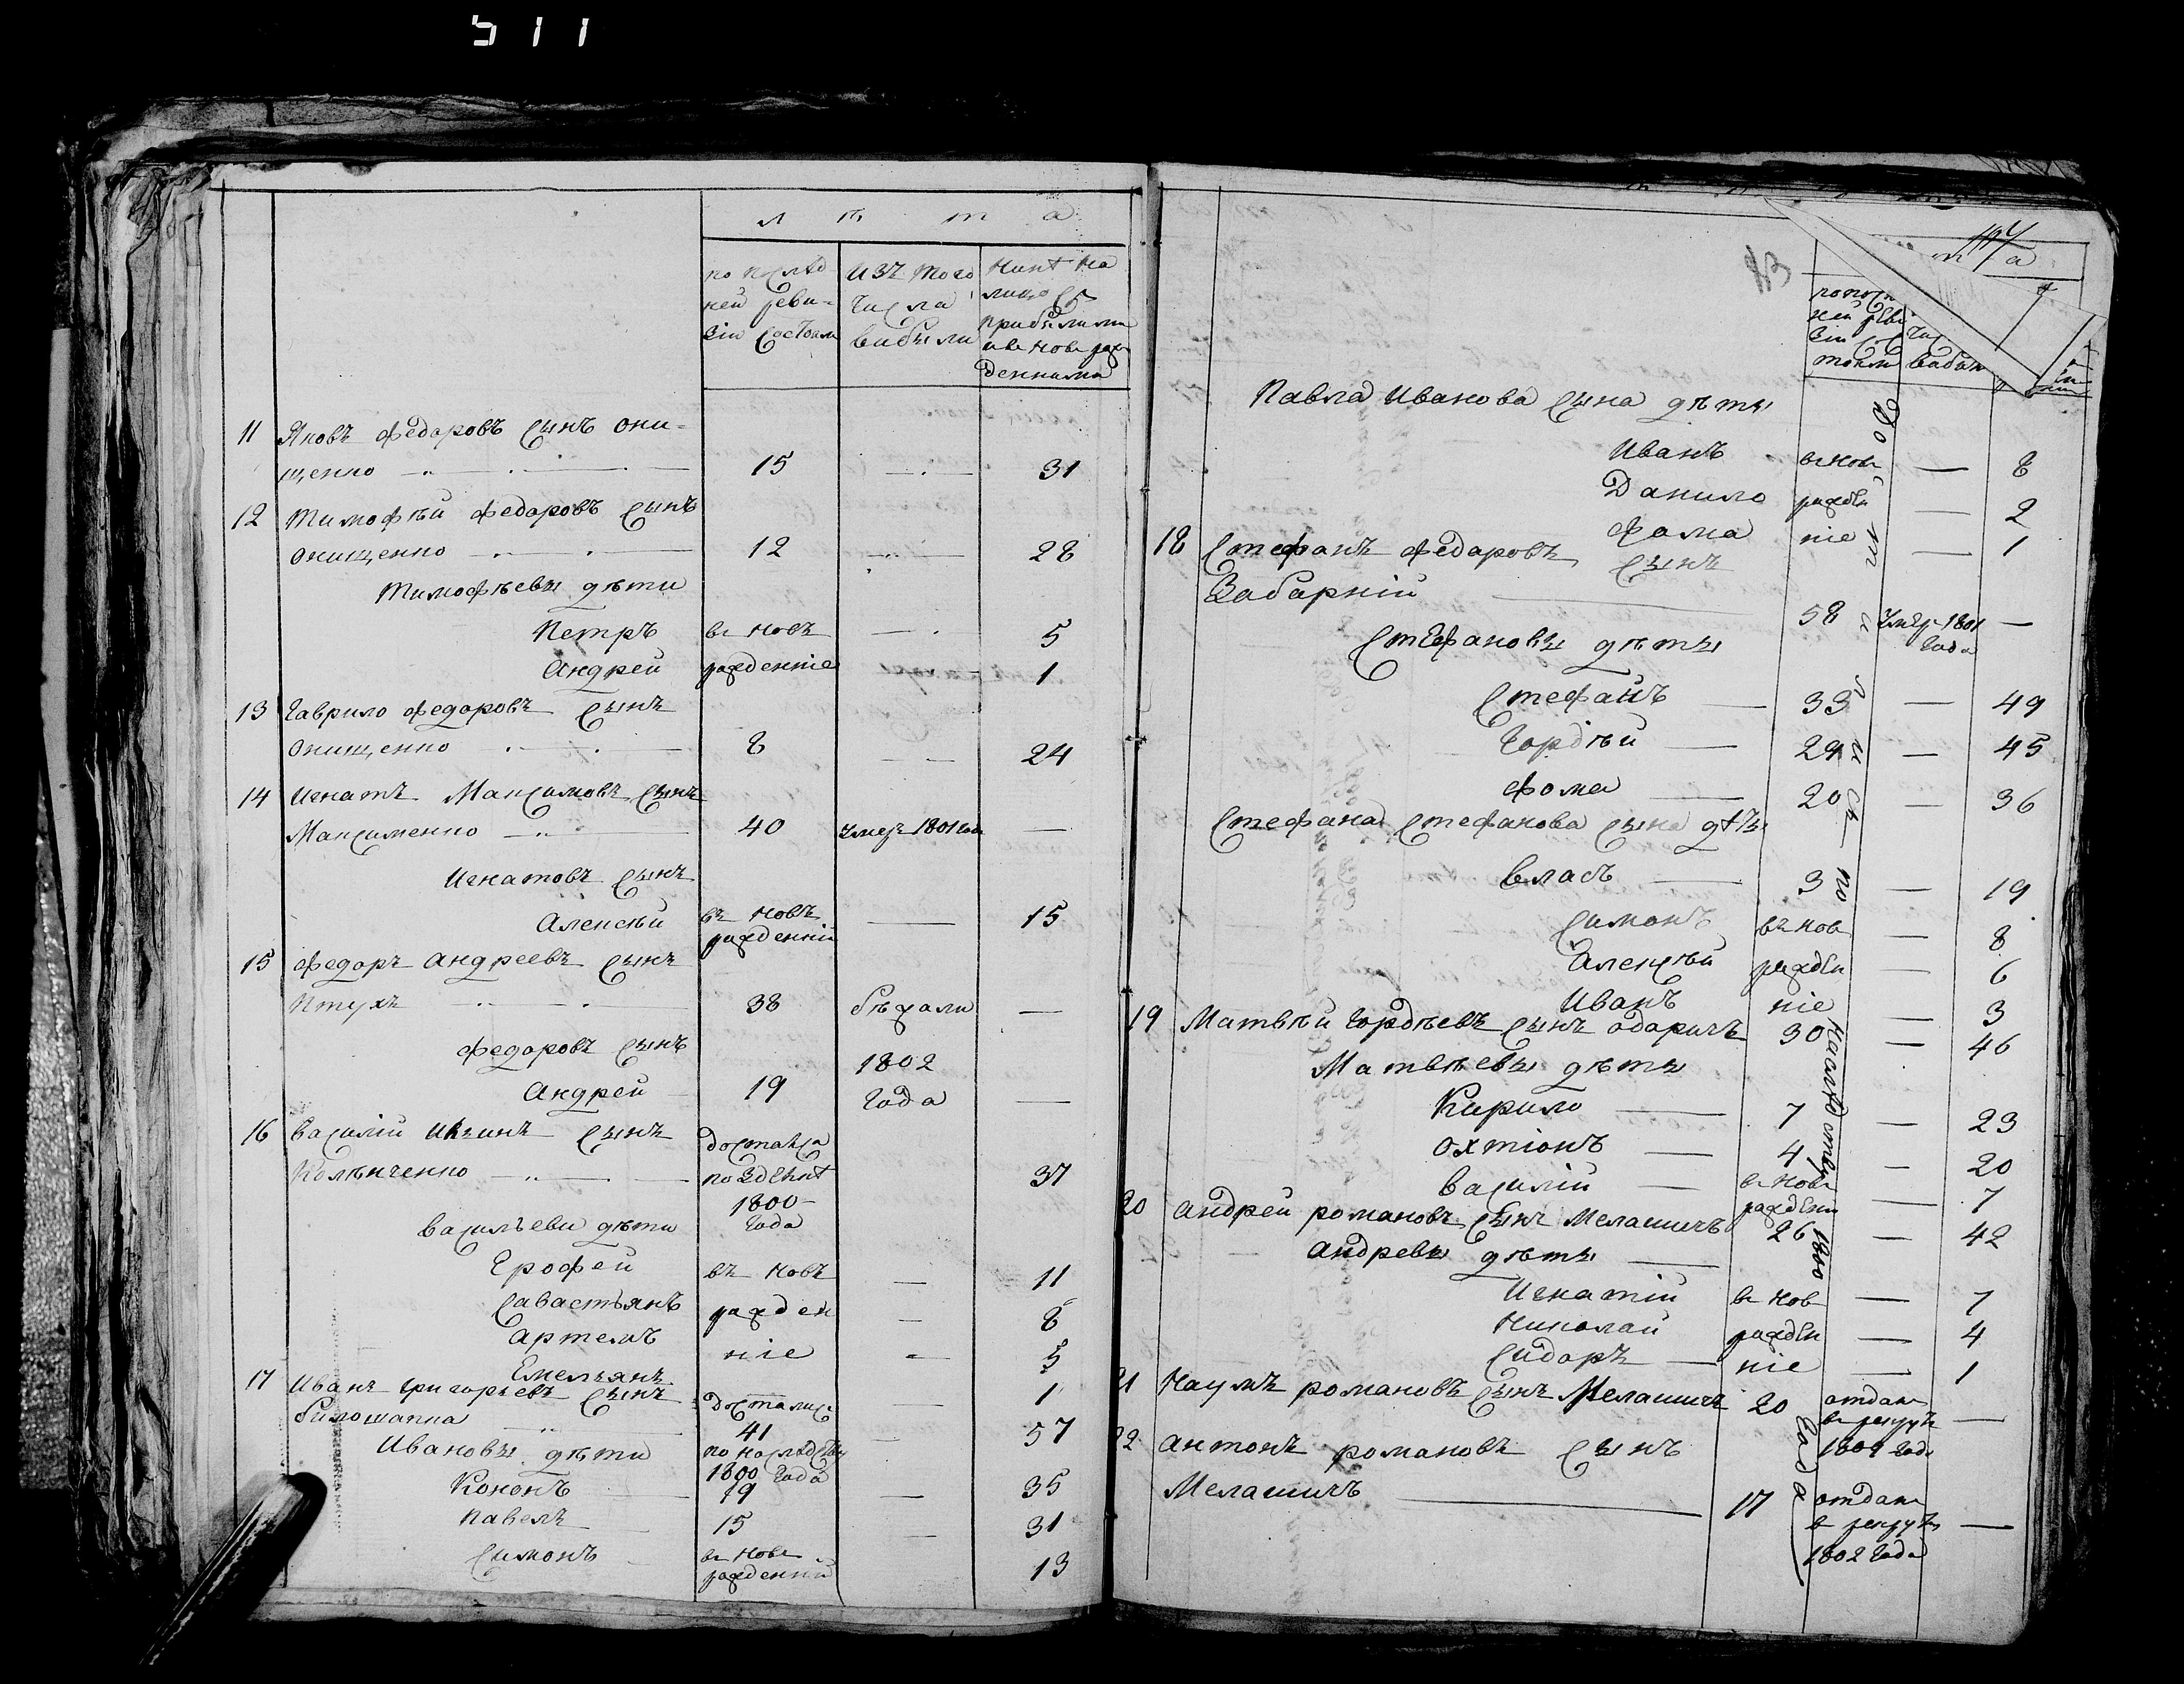 511
л ѣ т а
по послѣд
ней реви=
зіи состояли
изъ того
числа
выбыли
нинѣ на
лицо съ
прибылими
и въ новь рож
денными
11 Яковъ Федоровъ сынъ Они=
щенко 15 — 31
12 Тимофѣй Федоровъ сынъ
Онищенко 12 — 28
Тимофѣевы дѣти
Петръ въ новъ — 5
Андрей рожденніе 1
13 Гаврило Федоровъ сынъ
Онищенко 8 — 24
14 Игнатъ Максимовъ сынъ
Максименко 40 умеръ 1801 года —
Игнатовъ сынъ
Алексѣй въ новъ рожденній — 15
15 Федоръ Андреевъ сынъ
Птухъ 38 бѣжали —
Федоровъ сынъ 1802
Андрей 19 года —
16 Василій сынъ достался
Колѣнченко по здѣлкѣ 37
1800
Васильеви дѣти года
Ерофей въ новъ — 11
Савастьянъ рожден — 8
Артемъ ніе - 5
Емельянъ — 1
17 Иванъ Григорьевъ сынъ достались
Билошапка 41 — 57
Ивановы дѣти по наслѣдству
1800 года
Кононъ 19 — 35
Павелъ 15 — 31
Симонъ въ новъ рожденній 13
114
13
т а
ней реви
зіи сос
тояли
чис
выбыли
Павла Иванова сына дѣты
Иванъ въ новъ — 8
Данило рожден — 2
Фома ніе — 1
18 Стефанъ Федоровъ сынъ
Забарній 58 умеръ 1801 года —
Стефановы дѣты
Стефанъ — 33 — 49
Гордѣй — 29 — 45
Фома — 20 — 36
Стефана Стефанова сына дѣты
Власъ — 3 — 19
Симонъ въ нов — 8
Алексѣй рожден — 6
Иванъ ніе — 3
19 Матвѣй Гордѣевъ сынъ Одаричъ 30 — 46
Матвѣевы дѣты
Кирило — 7 — 23
Охтіонъ — 4 — 20
Василій — въ новъ рожденіи — 7
20 Андрей Романовъ сынъ Мелашичъ 26 — 42
Андревы дѣты —
Игнатій въ нов — 7
Николай рожден — 4
Сидоръ — ніе — 1
21 Наумъ Романовъ сынъ Мелашичъ 20 отданъ
въ рекруты —
22 Антонъ Романовъ сынъ 1804 года
Мелашичъ — 17 отданъ
въ рекруты —
1802 года
Достались по наслѣдству 1800 года